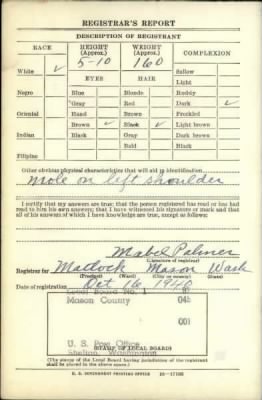 REGISTRAR'S REPORT
DESCRIPTION OF REGISTRANT
RACE
HEIGHT
(Approx.)
WEIGHT
(Approx.)
COMPLEXION
White ✓
5-10
160
Sallow
EYES
HAIR
Light
Negro
Blue
Blonde
Ruddy
Gray
Red
Dark ✓
Oriental
Hazel
Brown
Freckled
Brown ✓
Black ✓
Light brown
Indian
Black
Gray
Dark brown
Bald
Black
Filipino
Other obvious physical characteristics that will aid in identification
Mole on left shoulder
I certify that my answers are true; that the person registered has read or has had
read to him his own answers; that I have witnessed his signature or mark and that
all of his answers of which I have knowledge are true, except as follows:
Mabel Palmer
(Signature of registrar)
Registrar for Matlock Mason Wash
(Precinct) (Ward) (City or county) (State)
Date of registration Oct 16 1940
Mason County 045
001
U. S. Post Office
Shelton, Washington
(STAMP OF LOCAL BOARD)
(The stamp of the Local Board having jurisdiction of the registrant
shall be placed in the above space.)
U. S. GOVERNMENT PRINTING OFFICE 16—17105